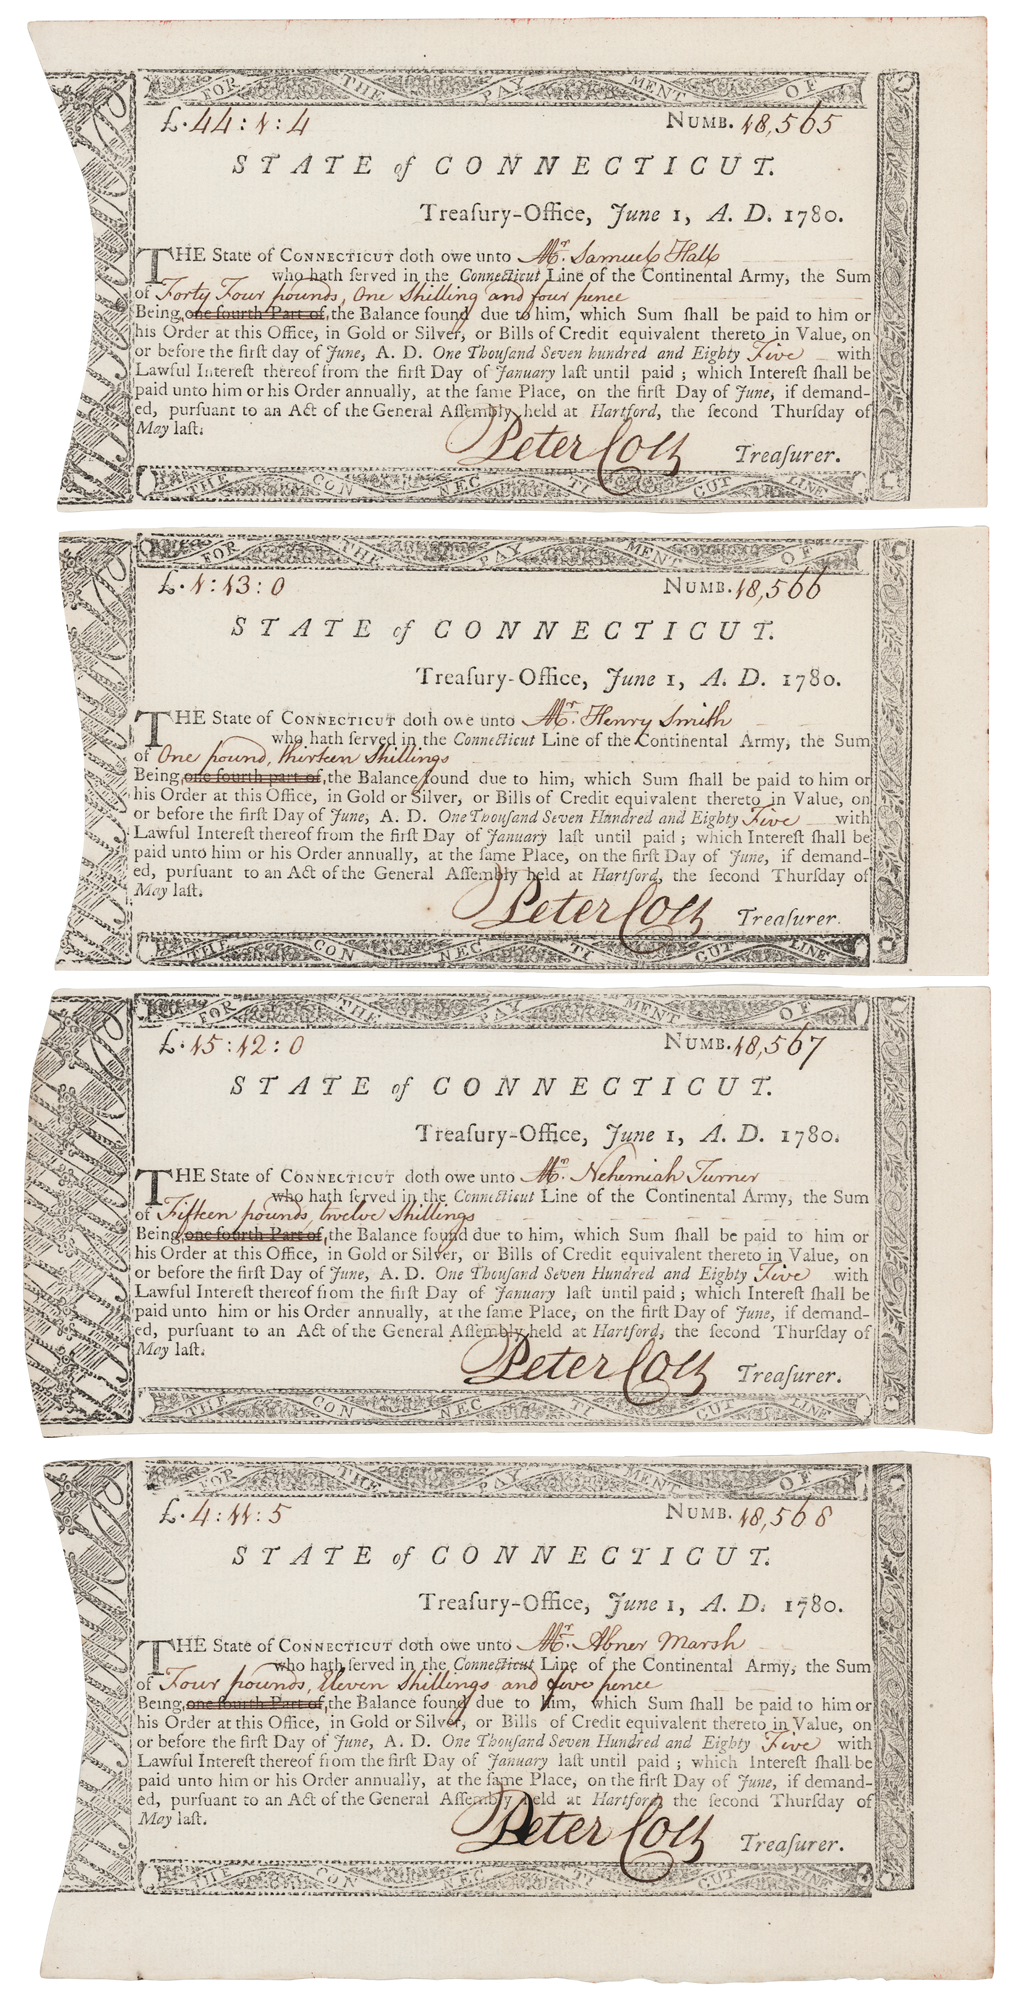 FOR THE PAY MENT OF
£. 44 : 1 : 4 NUMB. 18,565
STATE of CONNECTICUT.
Treaſury-Office, June 1, A. D. 1780.
THE State of CONNECTICUT doth owe unto Mr. Samuel Hall
who hath ſerved in the Connecticut Line of the Continental Army, the Sum
of Forty Four pounds, One Shilling and four pence
Being, one fourth Part of, the Balance found due to him, which Sum ſhall be paid to him or
his Order at this Office, in Gold or Silver, or Bills of Credit equivalent thereto in Value, on
or before the firſt day of June, A. D. One Thouſand Seven hundred and Eighty Five with
Lawful Intereſt thereof from the firſt Day of January laſt until paid ; which Intereſt ſhall be
paid unto him or his Order annually, at the ſame Place, on the firſt Day of June, if demand-
ed, purſuant to an Act of the General Aſſembly held at Hartford, the ſecond Thurſday of
May laſt.
Peter Colt Treaſurer.
THE CON NEC TI CUT LINE
FOR THE PAY MENT OF
£. 1 : 13 : 0 NUMB. 18,566
STATE of CONNECTICUT.
Treaſury-Office, June 1, A. D. 1780.
THE State of CONNECTICUT doth owe unto Mr. Henry Smith
who hath ſerved in the Connecticut Line of the Continental Army, the Sum
of One pound, thirteen Shillings
Being, one fourth part of, the Balance found due to him, which Sum ſhall be paid to him or
his Order at this Office, in Gold or Silver, or Bills of Credit equivalent thereto in Value, on
or before the firſt day of June, A. D. One Thouſand Seven Hundred and Eighty Five with
Lawful Intereſt thereof from the firſt Day of January laſt until paid ; which Intereſt ſhall be
paid unto him or his Order annually, at the ſame Place, on the firſt Day of June, if demand-
ed, purſuant to an Act of the General Aſſembly held at Hartford, the ſecond Thurſday of
May laſt.
Peter Colt Treaſurer.
THE CON NEC TI CUT LINE
FOR THE PAY MENT OF
£. 15 : 12 : 0 NUMB. 18,567
STATE of CONNECTICUT.
Treaſury-Office, June 1, A. D. 1780.
THE State of CONNECTICUT doth owe unto Mr. Nehemiah Turner
who hath ſerved in the Connecticut Line of the Continental Army, the Sum
of Fifteen pounds, twelve Shillings
Being, one fourth Part of, the Balance found due to him, which Sum ſhall be paid to him or
his Order at this Office, in Gold or Silver, or Bills of Credit equivalent thereto in Value, on
or before the firſt Day of June, A. D. One Thouſand Seven Hundred and Eighty Five with
Lawful Intereſt thereof from the firſt Day of January laſt until paid ; which Intereſt ſhall be
paid unto him or his Order annually, at the ſame Place, on the firſt Day of June, if demand-
ed, purſuant to an Act of the General Aſſembly held at Hartford, the ſecond Thurſday of
May laſt.
Peter Colt Treaſurer.
THE CON NEC TI CUT LINE
FOR THE PAY MENT OF
£. 4 : 11 : 5 NUMB. 18,568
STATE of CONNECTICUT.
Treaſury-Office, June 1, A. D. 1780.
THE State of CONNECTICUT doth owe unto Mr. Abner Marsh
who hath ſerved in the Connecticut Line of the Continental Army, the Sum
of Four pounds, Eleven Shillings and five pence
Being, one fourth Part of, the Balance found due to him, which Sum ſhall be paid to him or
his Order at this Office, in Gold or Silver, or Bills of Credit equivalent thereto in Value, on
or before the firſt day of June, A. D. One Thouſand Seven Hundred and Eighty Five with
Lawful Intereſt thereof from the firſt Day of January laſt until paid ; which Intereſt ſhall be
paid unto him or his Order annually, at the ſame Place, on the firſt Day of June, if demand-
ed, purſuant to an Act of the General Aſſembly held at Hartford, the ſecond Thurſday of
May laſt.
Peter Colt Treaſurer.
THE CON NEC TI CUT LINE